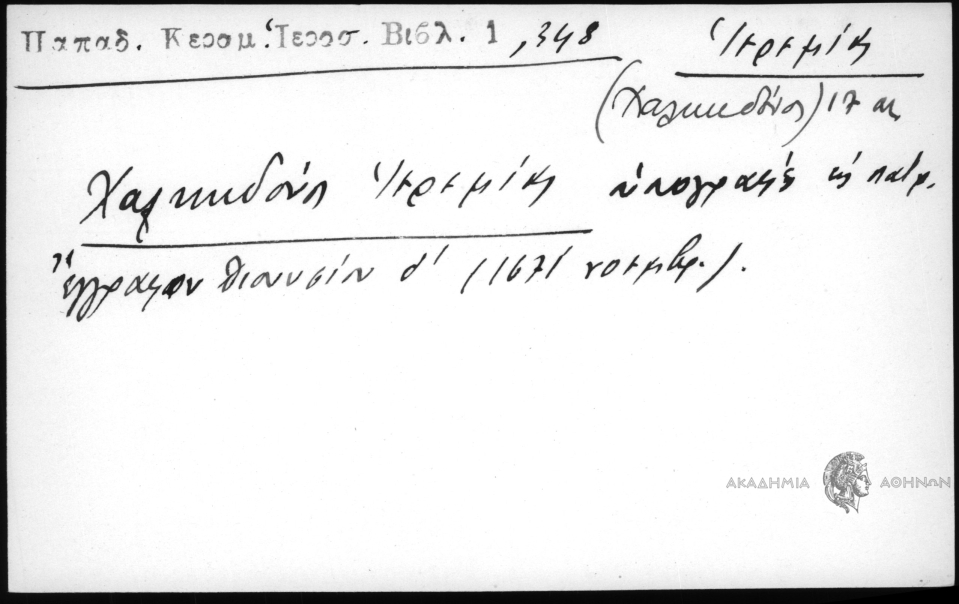 Παπαδ. Κεραμ. Ἱεροσ. Βιβλ. 1 ,348
Ἱερεμίας
(Χαλκηδόνος) 17 αι.
Χαλκηδόνος Ἱερεμίας ὑπογραφὴ εἰς πατρ.
ἔγγραφον Διονυσίου δ' (1671 νοεμβρ.).
ΑΚΑΔΗΜΙΑ ΑΘΗΝΩΝ